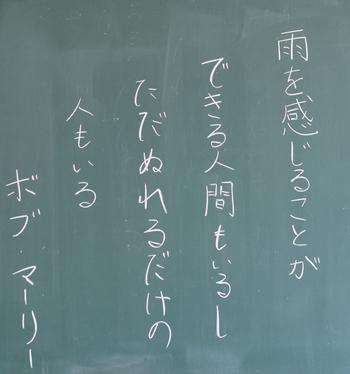 雨を感じることが
できる人間もいるし
ただぬれるだけの
人もいる
ボブ・マーリー